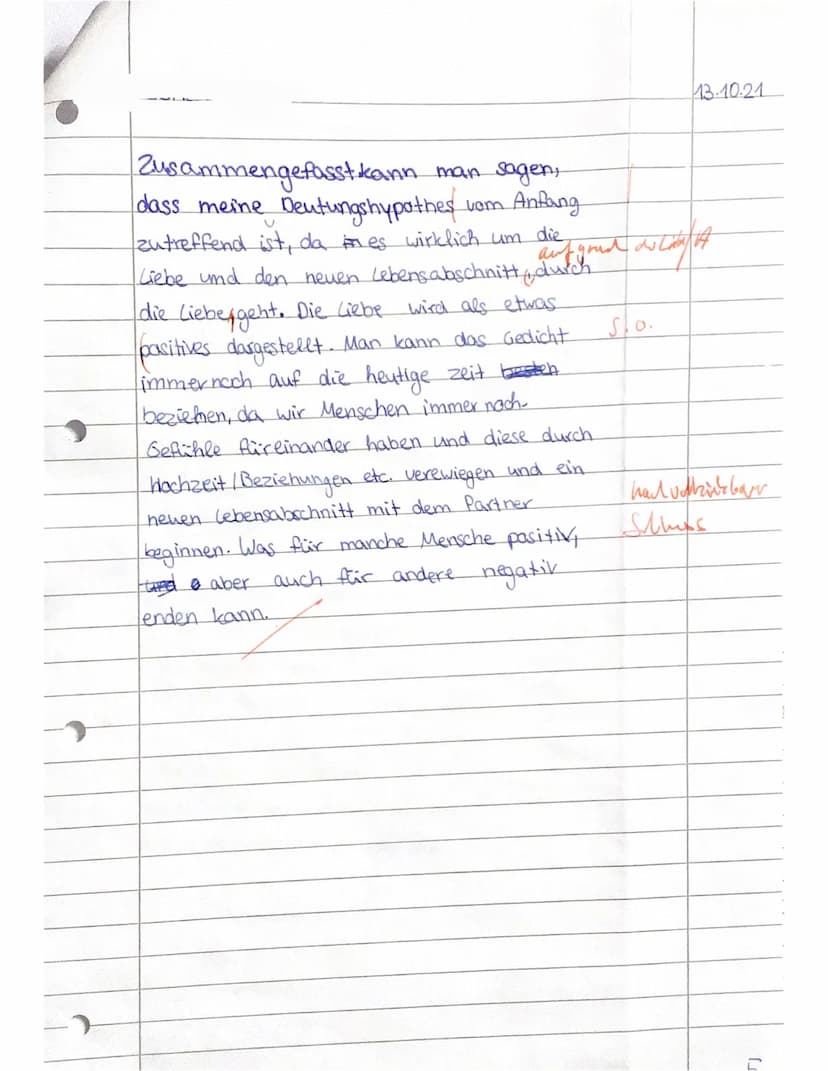 13.10.21
Zusammengefasst kann man sagen,
dass meine Deutungshypothes vom Anfang
zutreffend ist, da es wirklich um die
aufgrund der
Liebe und den neuen Lebensabschnitt, durch
die Liebe, geht. Die Liebe wird als etwas
positives dargestellt. Man kann das Gedicht
s.o.
immernoch auf die heutige zeit
beziehen, da wir Menschen immer noch
Gefühle füreinander haben und diese durch
Hochzeit/Beziehungen etc. verewiegen und ein
nachvollziehbarer
neuen Lebensabschnitt mit dem Partner
Schluss
beginnen. Was für manche Mensche positiv,
aber auch für andere negativ
enden kann.